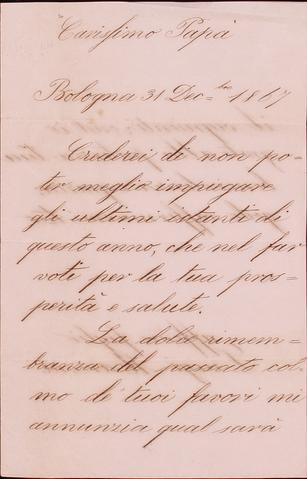 Carissimo Papà
Bologna 31 Dec.bre 1867
Crederei di non po=
ter meglio impiegare
gli ultimi istanti di
questo anno, che nel far
voti per la tua pros=
perità e salute.
La dolce rimem=
branza del passato col=
mo de tuoi favori mi
annunzia qual sarà